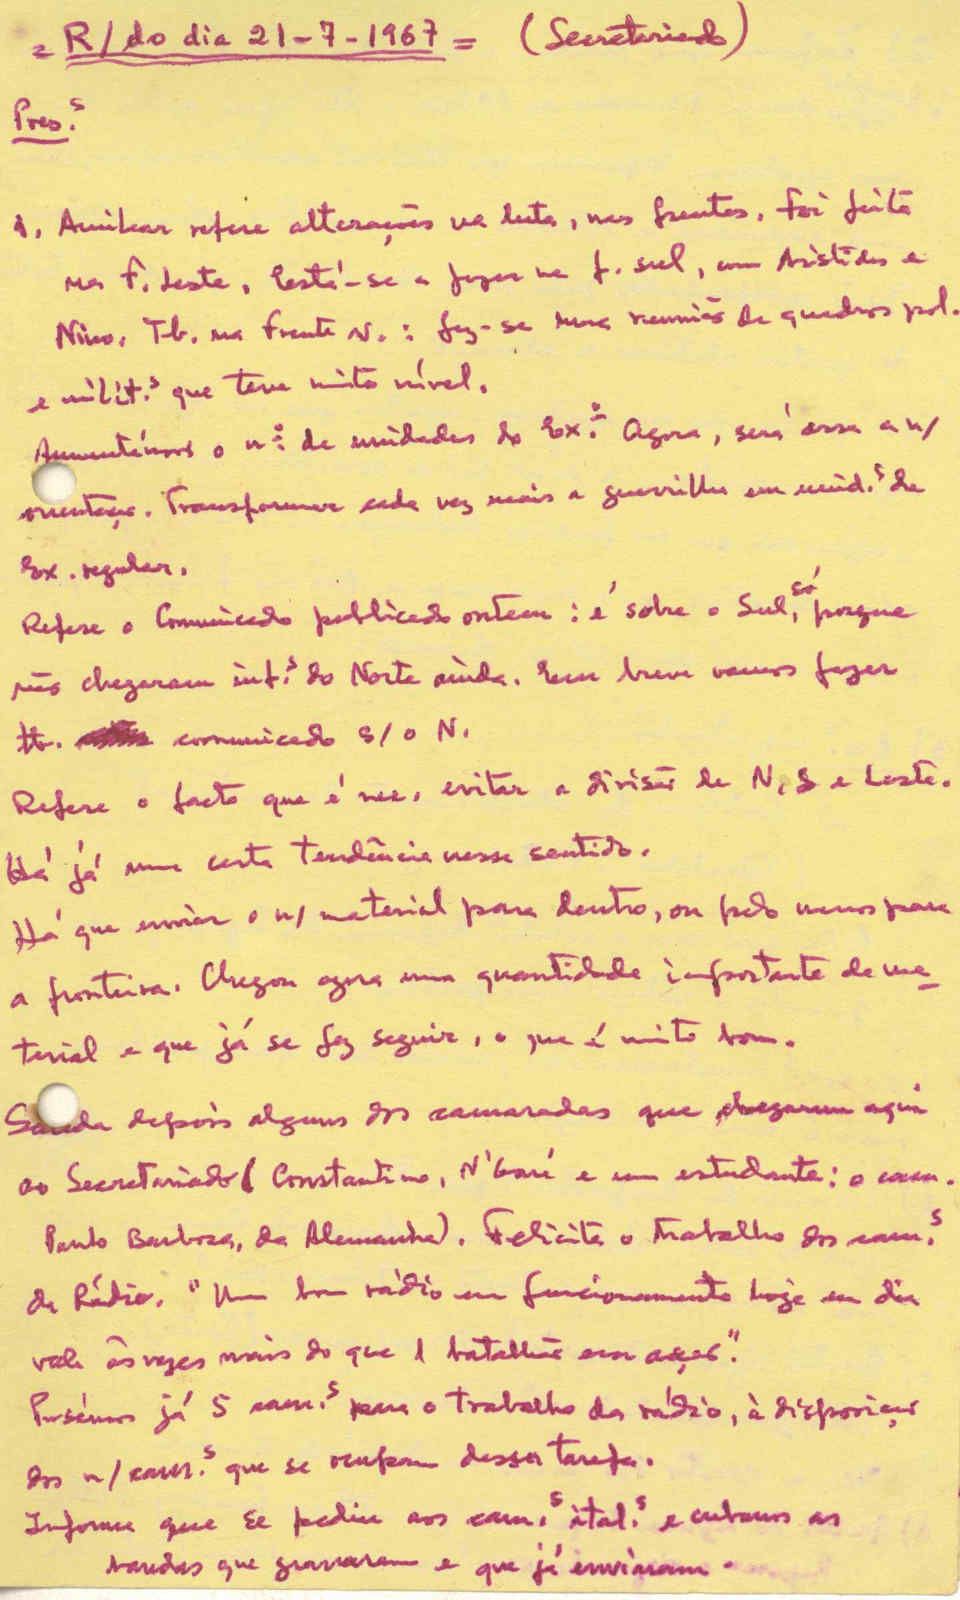 = R/do dia 21-7-1967 = (Secretariado)
Pres.s
1. Amilcar refere alterações na luta, nas frentes. Foi feita
na F. Leste. Está-se a fazer na f. sul, com Aristides e
Nino. Tb. na Frente N.: fez-se uma reunião de quadros pol.
e milit.s que teve muito nível.
Aumentámos o n.º de unidades do Ex.º Agora, será essa a n/
orientação. Transformar cada vez mais a guerrilha em unid.s de
Ex. regular.
Refere o Comunicado publicado ontem: é sobre o Sul, só porque
não chegaram inf.s do Norte ainda. Em breve vamos fazer
tb. comunicado s/ o N.
Refere o facto que é nec. evitar a divisão de N, S e Leste.
Há já uma certa tendência nesse sentido.
Há que enviar o n/ material para dentro, ou pelo menos para
a fronteira. Chegou agora uma quantidade importante de ma-
terial e que já se fez seguir, o que é muito bom.
Saúda depois alguns dos camaradas que chegaram aqui
ao Secretariado (Constantino, N'Baré e um estudante: o cam.
Paulo Barbosa, da Alemanha). Felicita o trabalho dos cam.s
da Rádio. "Um bom rádio em funcionamento hoje em dia
vale às vezes mais do que 1 batalhão em acção".
Pusémos já 5 cam.s para o trabalho da rádio, à disposição
dos n/ cam.s que se ocupam dessa tarefa.
Informa que se pediu aos cam.s ital.s e cubanos as
bandas que gravaram e que já enviaram.